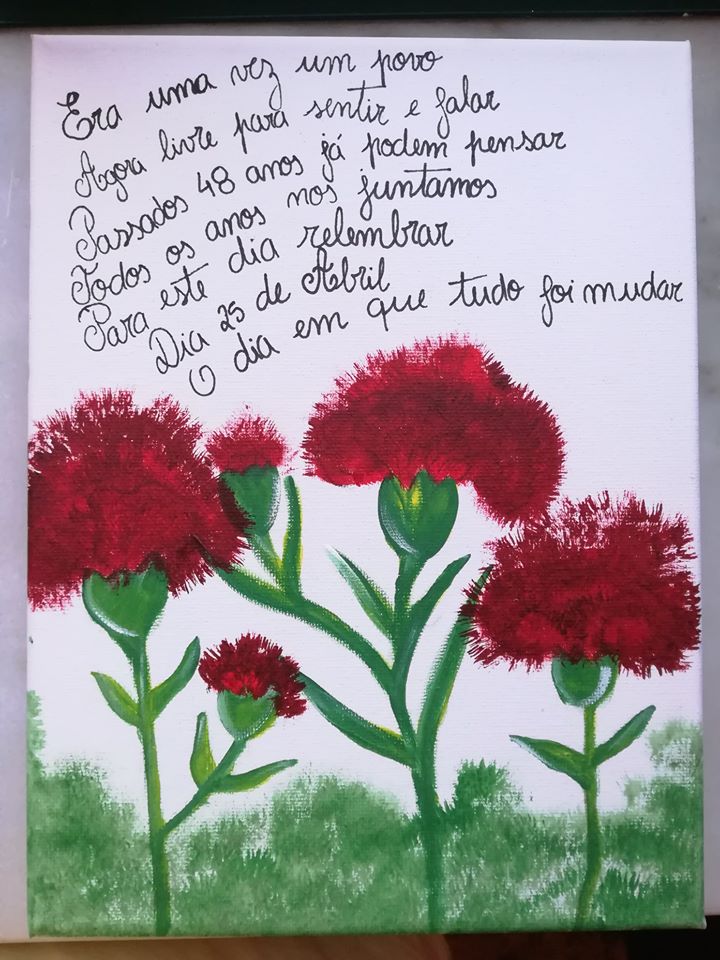 Era uma vez um povo
Agora livre para sentir e falar
Passados 48 anos já podem pensar
Todos os anos nos juntamos
Para este dia relembrar
Dia 25 de Abril
O dia em que tudo foi mudar